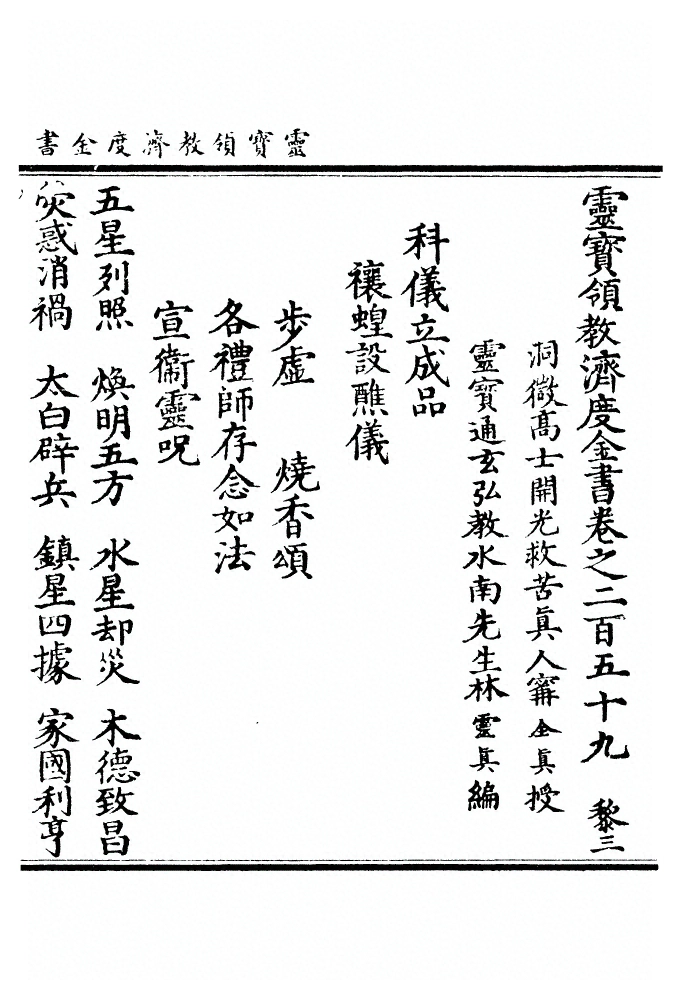 靈寶領教濟度金書
靈寶領教濟度金書卷之二百五十九　黎三
洞微高士開光救苦眞人甯全眞授
靈寶通玄弘教水南先生林靈眞編
科儀立成品
禳蝗設醮儀
步虛　燒香頌
各禮師存念如法
宣衛靈呪
五星列照　煥明五方　水星却災　木德致昌
熒惑消禍　太白辟兵　鎮星四據　家國利亨